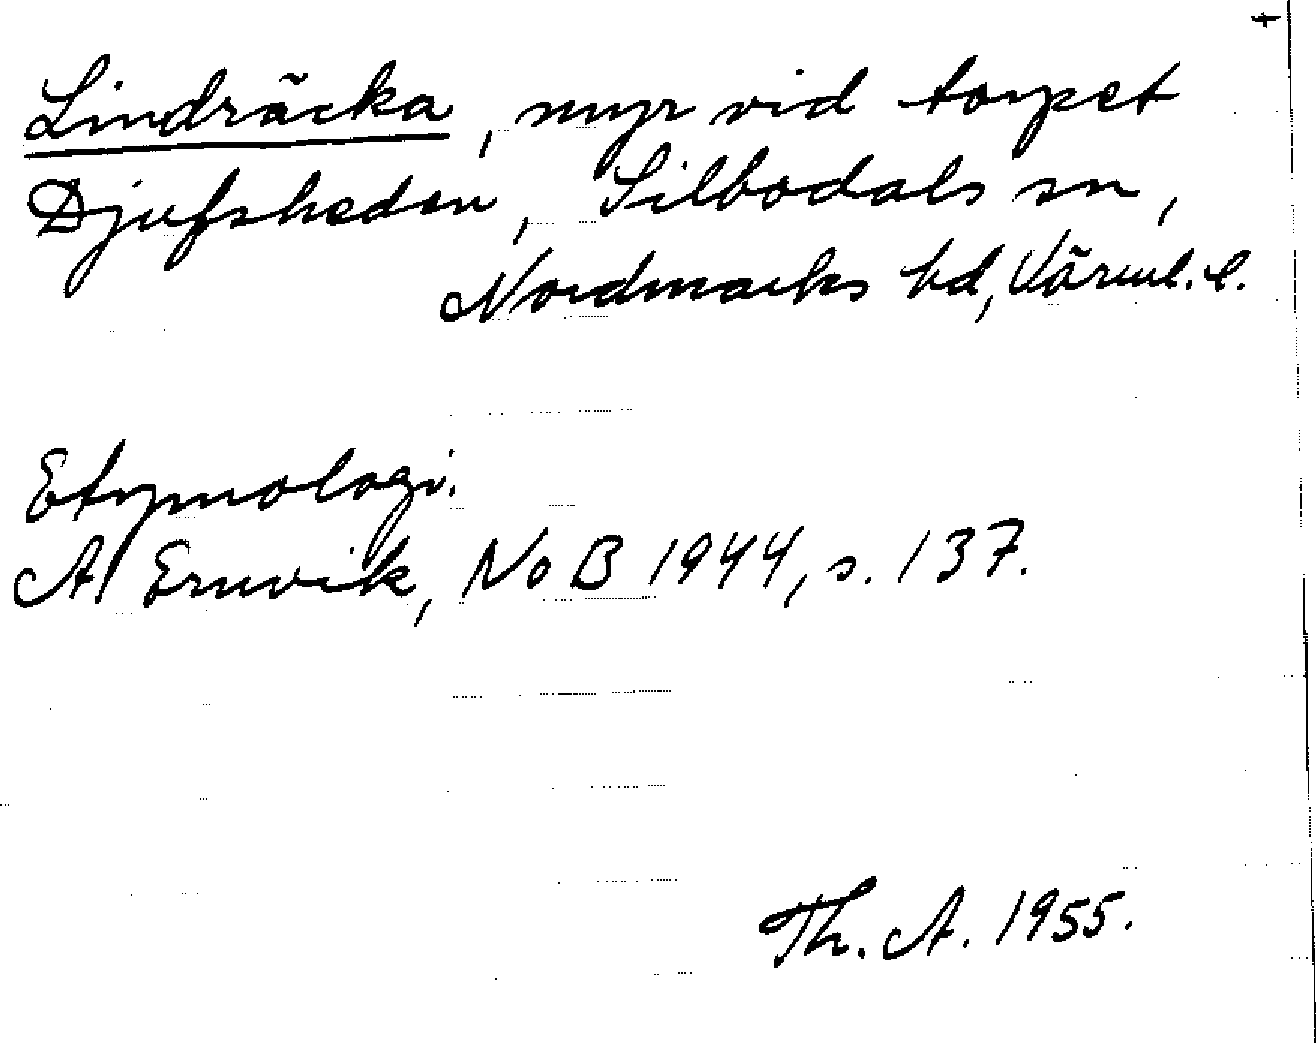 Lindräcka, myr vid torpet
Djufsheden, Silbodals sn,
Nordmarks hd, Värml. l.
Etymologi.
A. Ernvik, NoB 1944, s. 137.
Th. A. 1955.